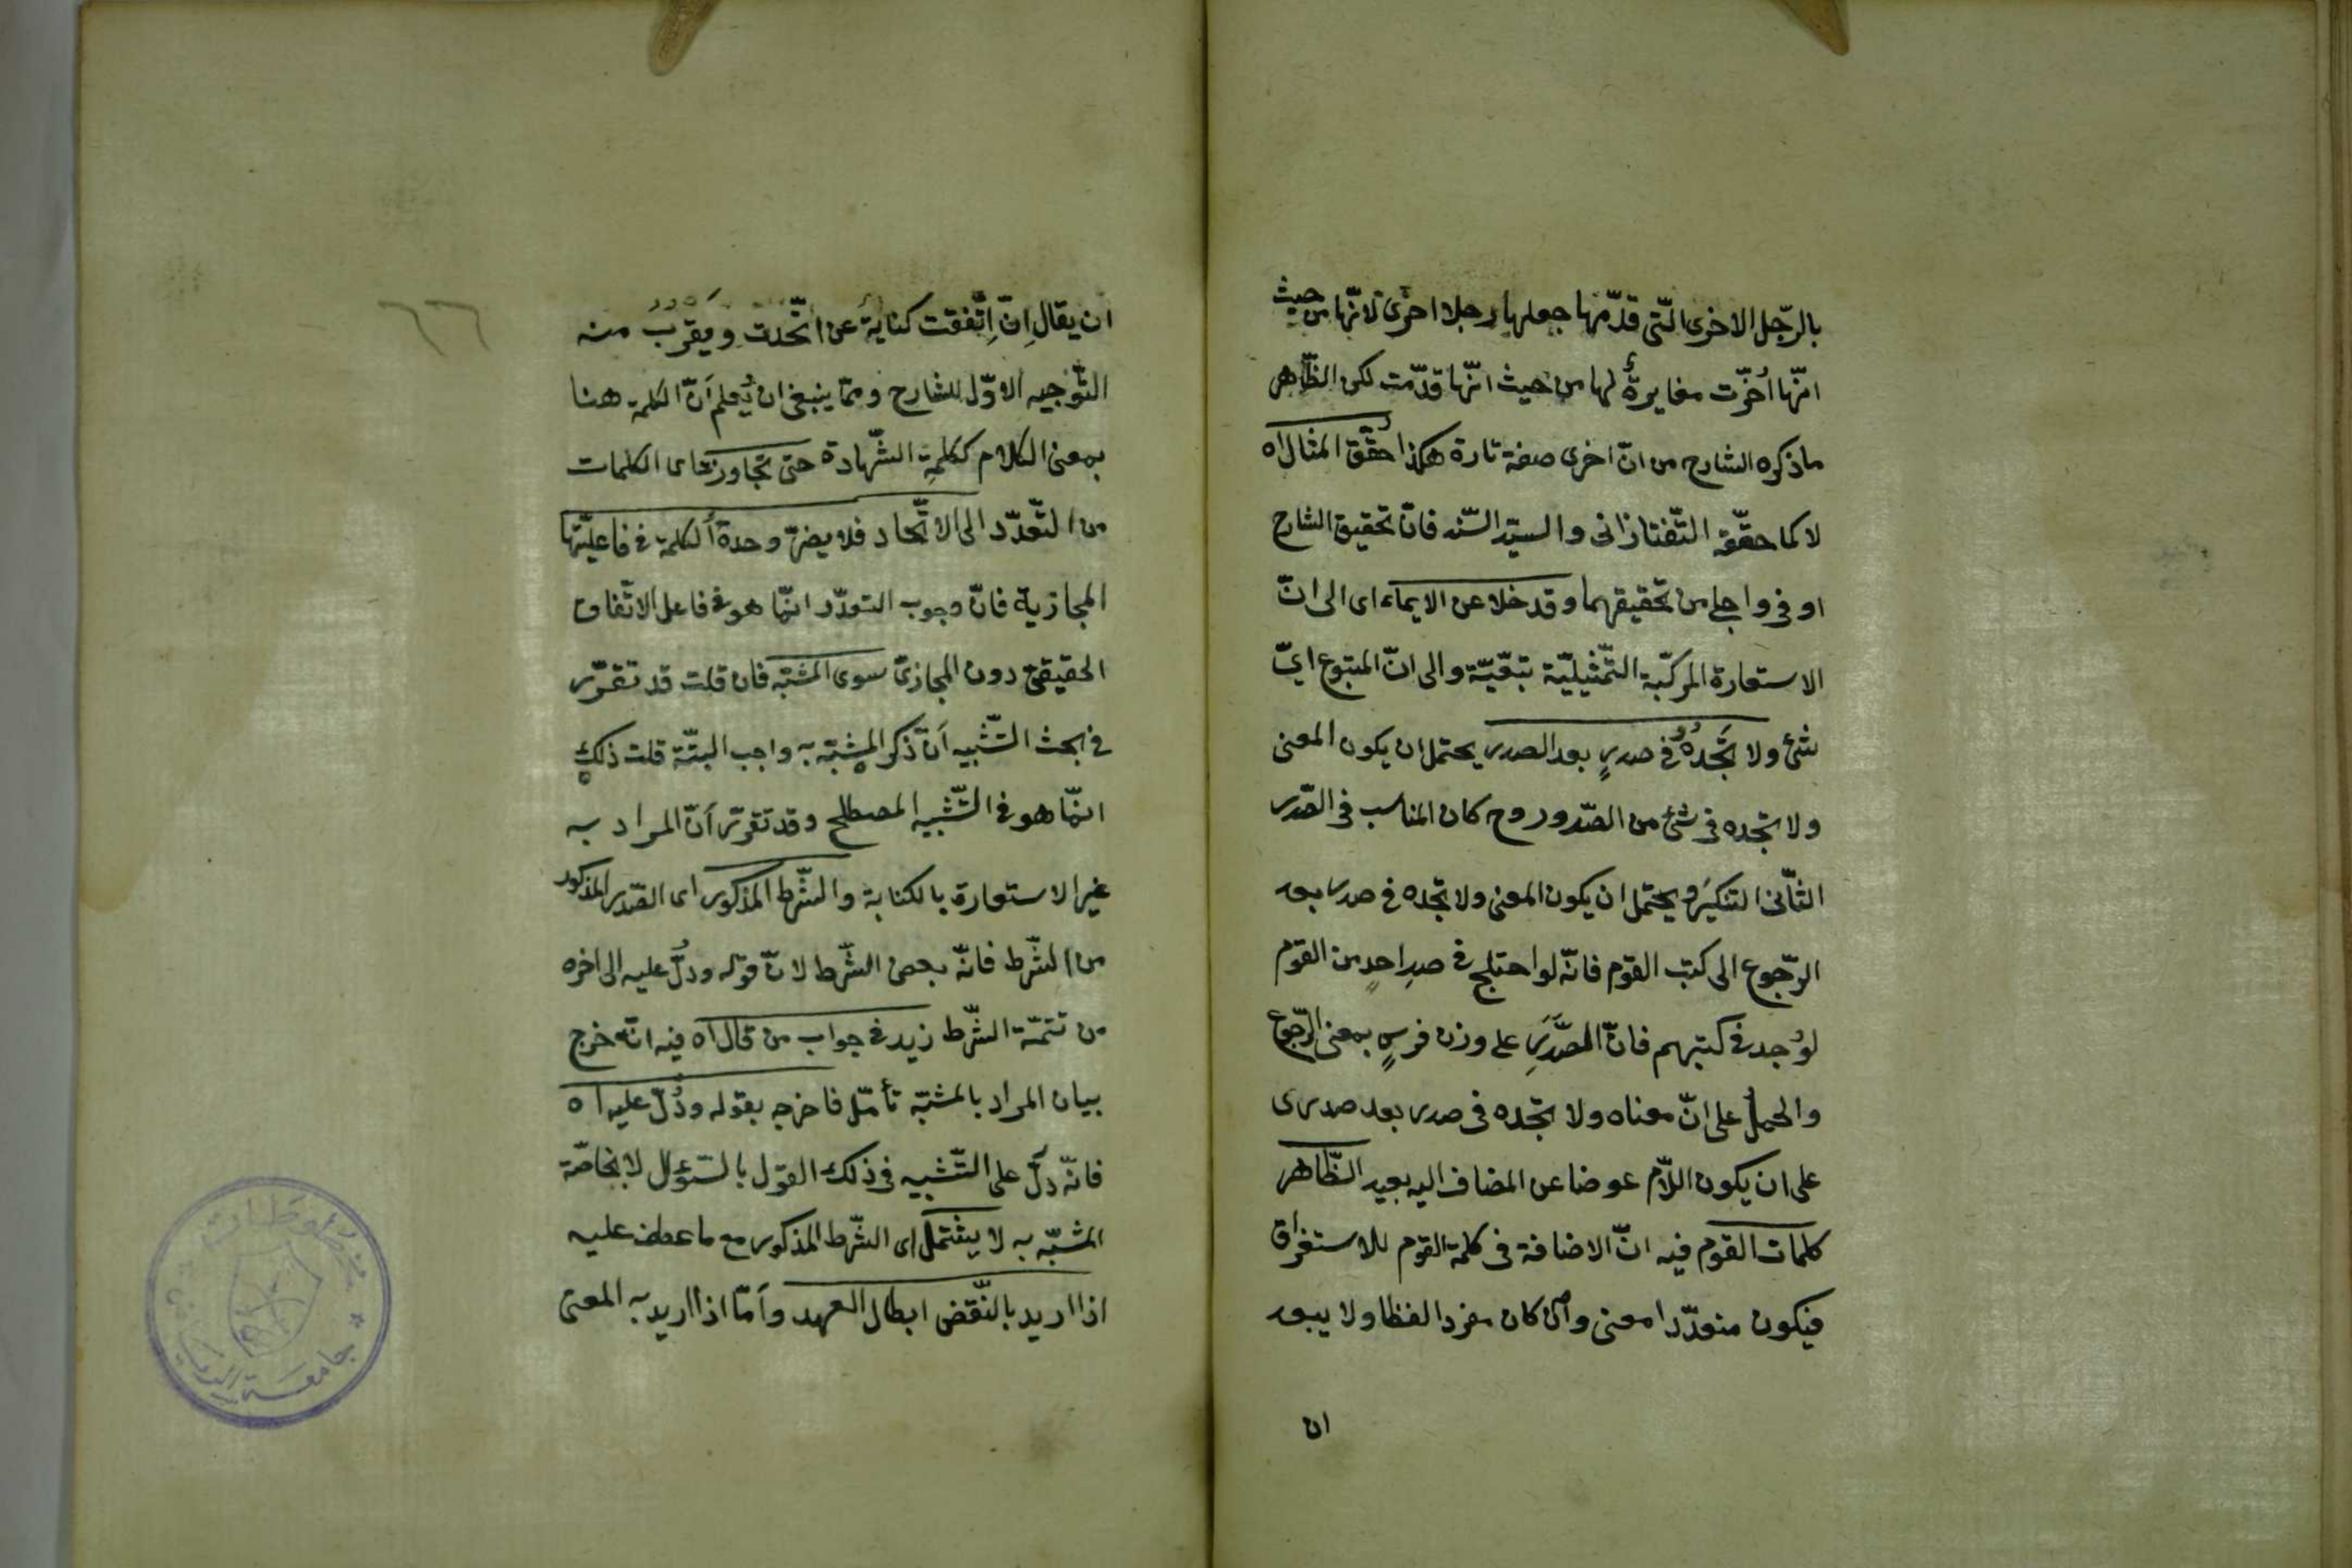 بالرّجل الاخرى الّتى قدّمها جعلها رجلا اخرى لانّها من حيث
انّها اُخّرت مغايرةٌ لها من حيث انّها قدّمت لكن الظّاهر
ماذكره الشارح من انّ اخرى صفة تارة هكذا حقّق المثال اه
لا كما حقّقه التّفتازانى والسيّد السّند فانّ تحقيق الشارح
اوفى واجلى من تحقيقهما وقد خلا عن الايماء اى الى انّ
الاستعارة المركّبة التّمثيليّة تبعيّة والى انّ المتبوع اىّ
شئ ولا تَجدُهُ فى صدرٍ بعد الصدر يحتمل ان يكون المعنى
ولا تجده فى شئ من الصّدور وح كان المناسب فى الصّدر
الثّانى التنكيرَ ويحتمل ان يكون المعنى ولا تجده فى صدر بعد
الرّجوع الى كتب القوم فانّه لو احتلج فى صدرِ احدٍ من القوم
لوُجد فى كتبهم فانّ الصَّدَرَ على وزن فرسٍ بمعنى الرّجوع
والحملُ على انّ معناه ولا تجده فى صدر بعد صدرى
على ان يكون اللّام عوضا عن المضاف اليه بعيد الظّاهر
كلمات القوم فيه انّ الاضافة فى كلمة القوم للاستغراق
فيكون متعدّدا معنى وان كان مفردا لفظا ولا يبعد
ان
ان يقال اِنّ اِتّفقت كنايةٌ عن اتّحدت ويَقرُبُ منه
التّوجيه الاوّل للشارح وممّا ينبغى ان يُعلم اَنّ الكلمة هنا
بمعنى الكلام ككلمةِ الشّهادة حتى تجاوزت اى الكلمات
من التّعدّد الى الاتّحاد فلا يضرّ وحدةُ الكلمة فى فاعليّتها
المجازية فانّ وجوب التعدّد انّما هو فى فاعل الاتّفاق
الحقيقىّ دون المجازىّ سوى المشبّه فان قلت قد تقرّر
فى بحث التّشبيه اَنّ ذكر المشبّه به واجب البتّة قلت ذلك
انّما هو فى التّشبيه المصطلح وقد تقرّر اَنّ المراد به
غير الاستعارة بالكناية والشّرط المذكور اى القدر المذكور
من الشّرط فانّه بعض الشّرط لانّ قوله ودُلّ عليه الى اخره
من تتمّة الشّرط زيد فى جواب من قال اه فيه انّه خرج
بيان المراد بالمشبّه تأمّل فاخرجه بقوله ودُلّ عليه اه
فانّه دلّ على التّشبيه فى ذلك القول بالسّؤال لا بخاصّة
المشبّه به لا يشتمل اى الشّرط المذكور مع ما عطف عليه
اذا اريد بالنّقض ابطال العهد واَمّا اذا اريد به المعنى
٦٦